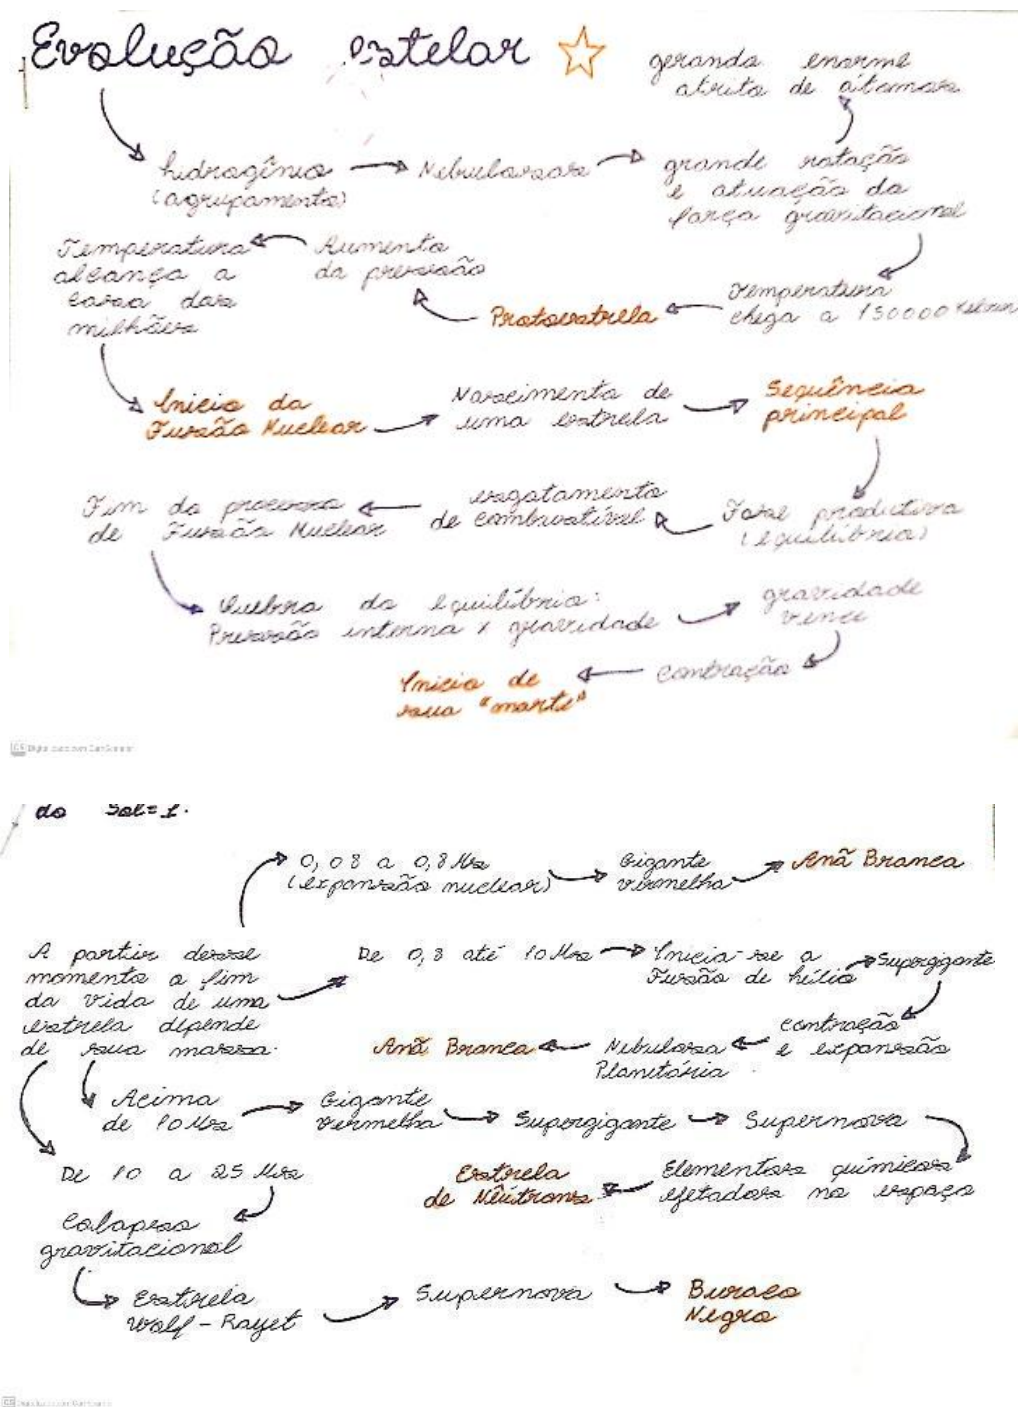 Evolução estelar
hidrogênio
(agrupamento)
Nebulosas
grande rotação
e atuação da
força gravitacional
gerando enorme
atrito de átomos
Temperatura
chega a 150000 Kelvin
Protoestrela
Aumento
da pressão
Temperatura
alcança a
casa dos
milhões
Inicio da
Fusão Nuclear
Nascimento de
uma estrela
Sequência
principal
Fase produtiva
(equilíbrio)
esgotamento
de combustível
Fim do processo
de Fusão Nuclear
Quebra do equilíbrio:
Pressão interna x gravidade
gravidade
vence
contração
Inicio de
sua "morte"
CS Digitalizado com CamScanner
do Sol=1.
A partir desse
momento o fim
da vida de uma
estrela depende
de sua massa.
0,08 a 0,8 Ms
(expansão nuclear)
Gigante
vermelha
Anã Branca
De 0,8 até 10 Ms
Inicia-se a
Fusão de hélio
Supergigante
contração
e expansão
Nebulosa
Planetária
Anã Branca
Acima
de 10 Ms
Gigante
vermelha
Supergigante
Supernova
Elementos químicos
ejetados no espaço
Estrela
de Nêutrons
De 10 a 25 Ms
Colapso
gravitacional
Estrela
Wolf-Rayet
Supernova
Buraco
Negro
CS Digitalizado com CamScanner